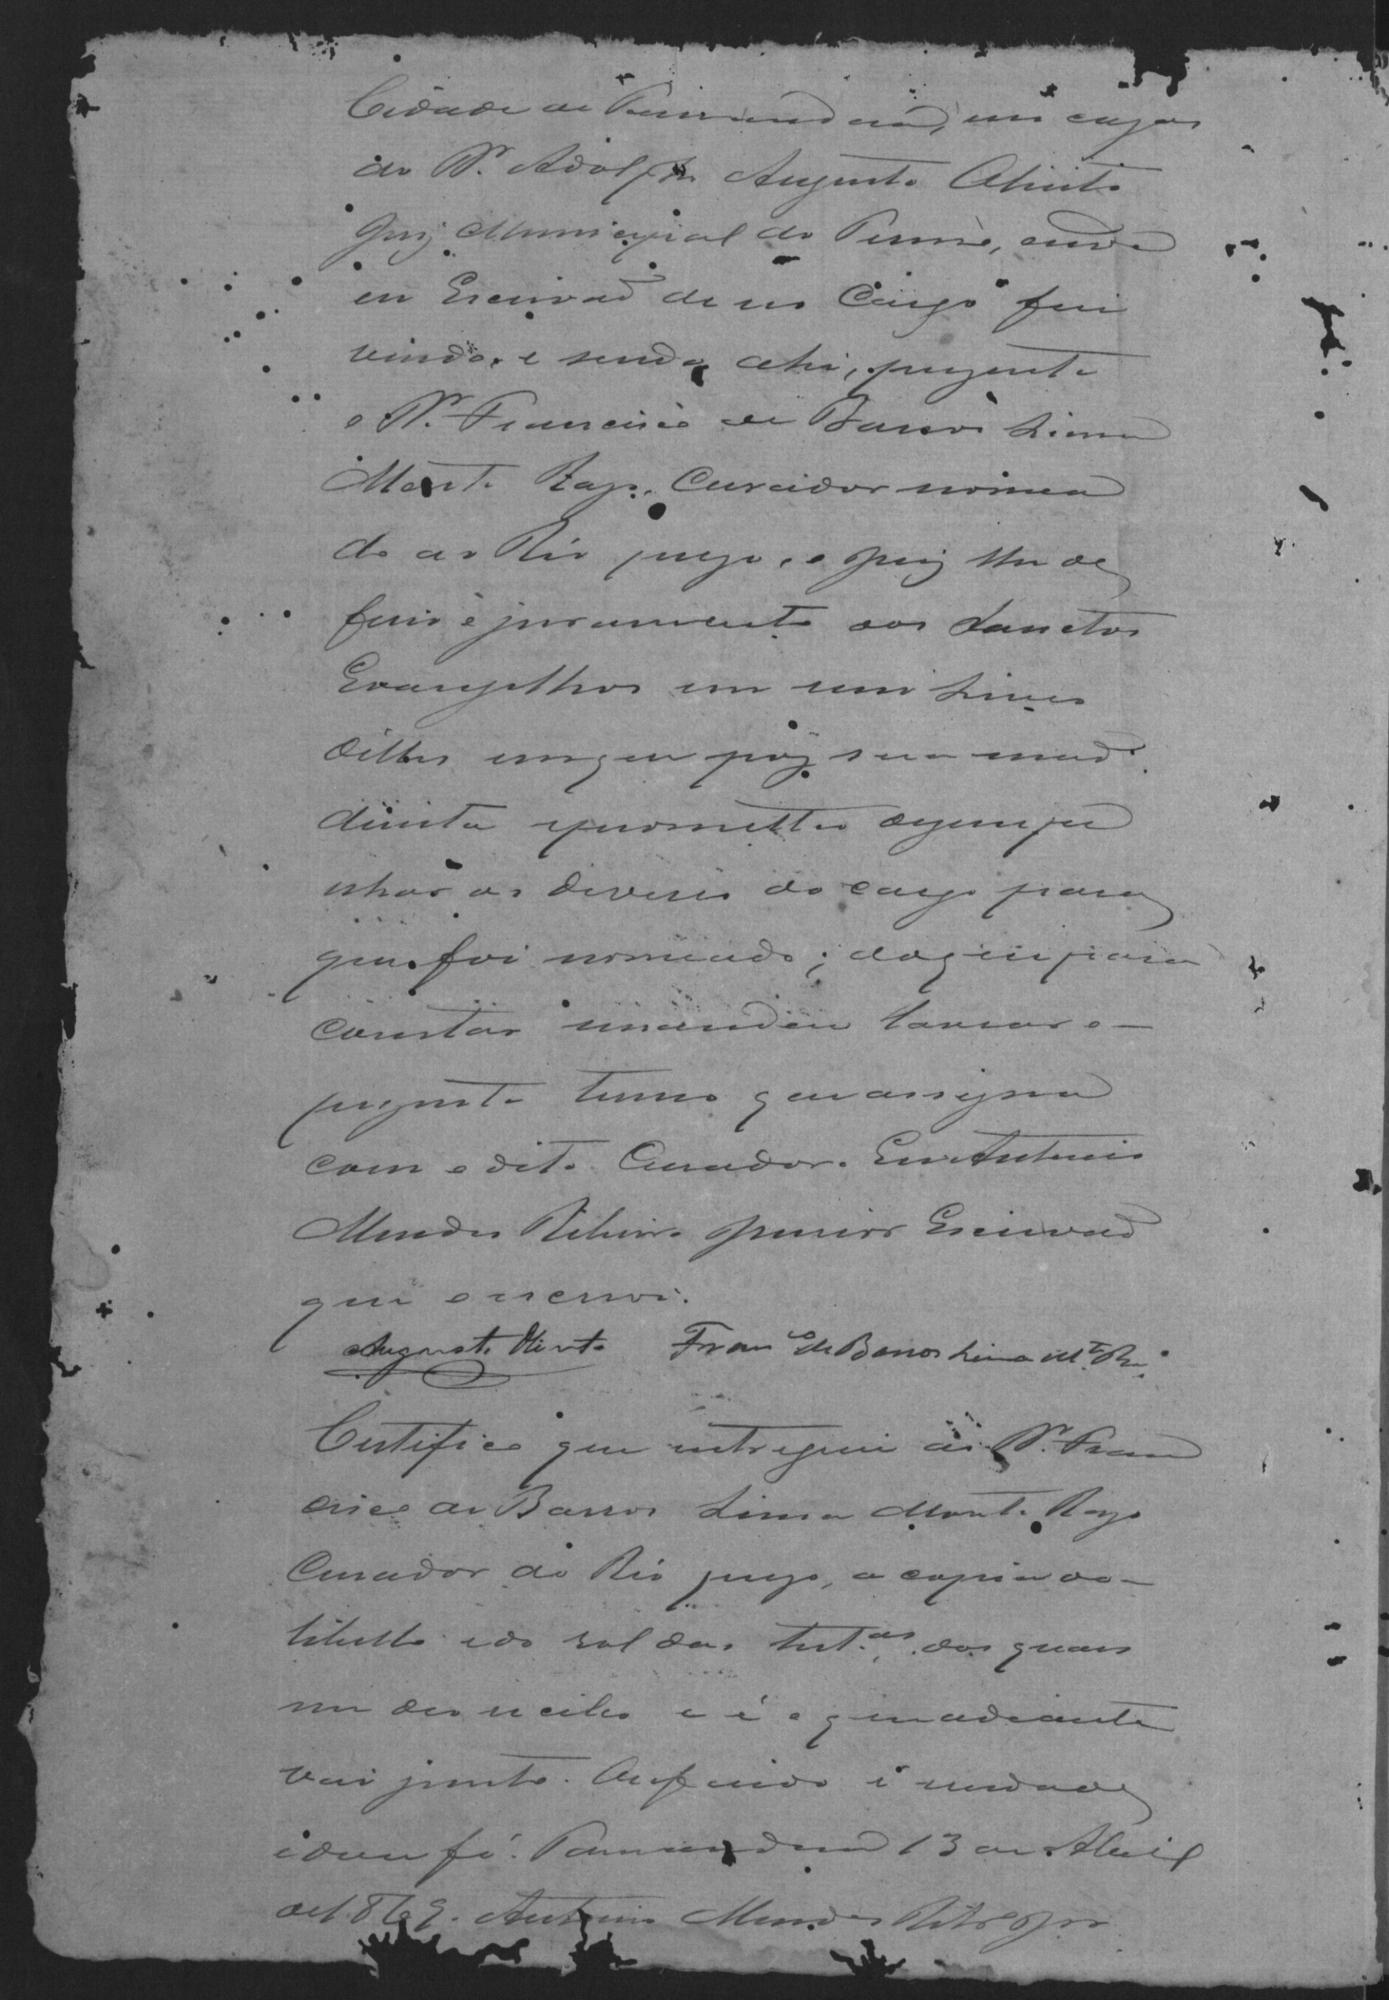 Cidade de Parnandua, em cazas
do Dr. Adolpho Augusto Olinto
Juiz Municipal do Termo, onde
eu Escrivaõ de seo Cargo fui
vindo, e sendo ahi, prezente
o Dr. Francisco de Barros Lima
Monte Razo, Curador nomea
do ao Réo prezo, o Juiz lhe de
furio juramento aos Sanctos
Evangelhos em um Livro
delles em que poz sua maõ
direita e prometteo dezempe
nhar os deveres do cargo para
que foi nomeado; do que para
constar mandou lavrar o
prezente termo que assigna
com o dito Curador. Eu Antonio
Mendes Ribeiro Junior Escrivaõ
que o escrevi.
Augusto Olinto Franco de Barros Lima Mte Rzo.
Certifico que entreguei ao Dr. Fran
cisco de Barros Lima Monte Razo
Curador do Réo prezo, a copia do
libello e do rol das testas. dos quaes
me deo recibo e é o que adiante
vai junto. O referido é verdade
e dou fé. 13 de Abril
de 1869. Antonio Mendes Ribro Jor